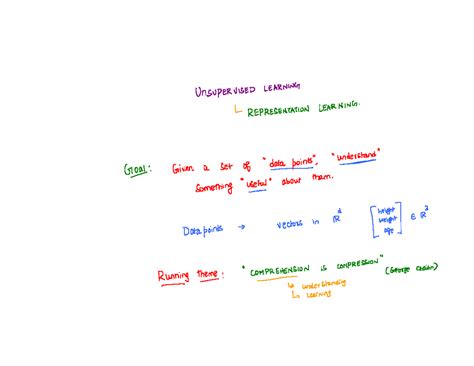 UNSUPERVISED LEARNING
REPRESENTATION LEARNING.
GOAL: Given a set of "data points", "understand"
something "useful" about them.
Data points → vectors in ℝᵈ [height weight age] ∈ ℝ³
Running Theme: "COMPREHENSION IS COMPRESSION" (George Chaitin)
↳ understanding
↳ learning